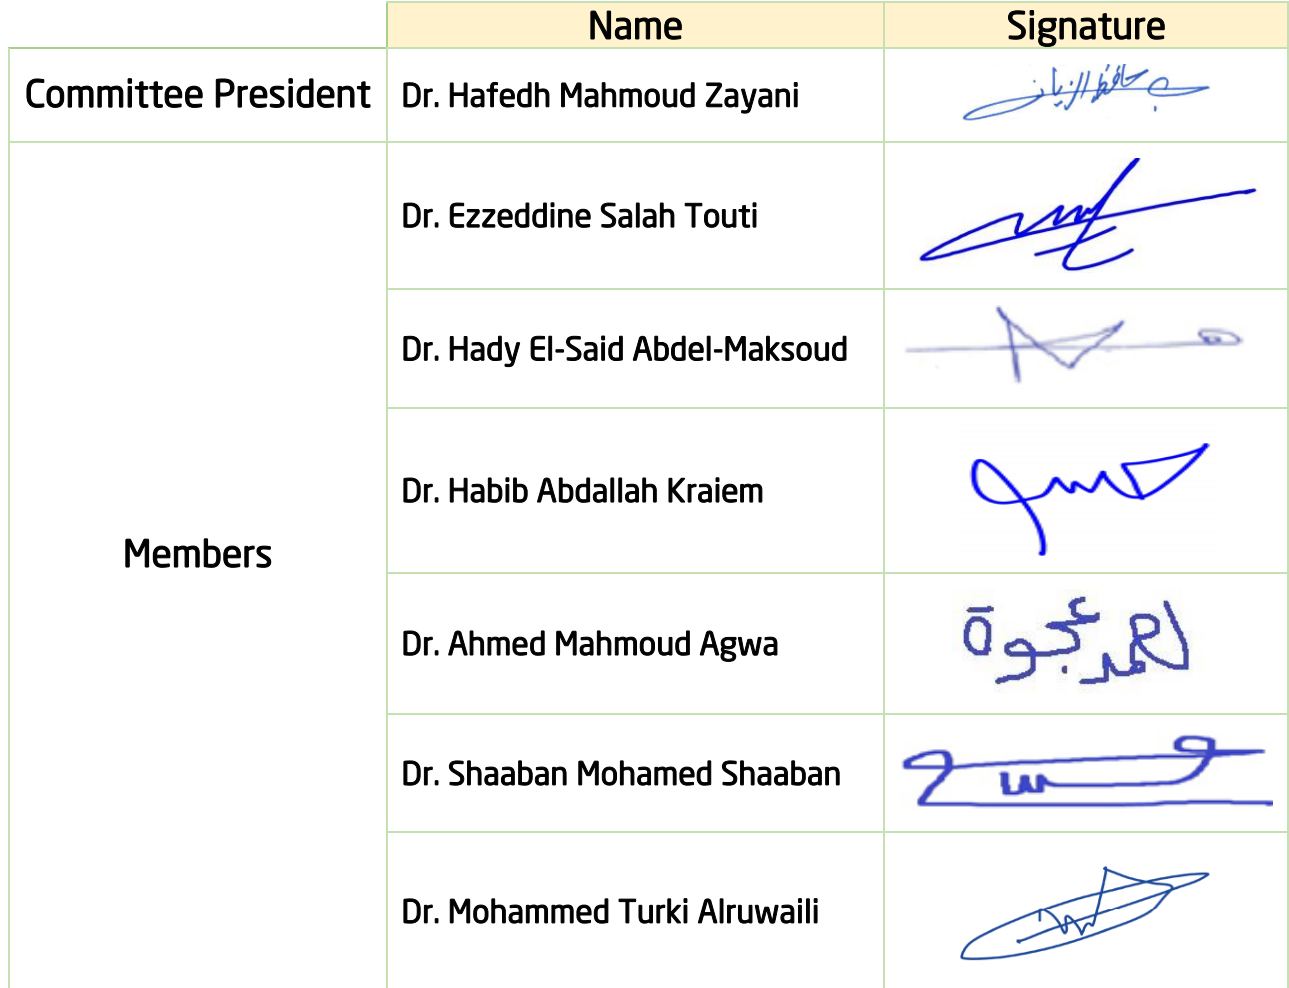 Name Signature
Committee President Dr. Hafedh Mahmoud Zayani حافظ الزياني
Members
Dr. Ezzeddine Salah Touti
Dr. Hady El-Said Abdel-Maksoud
Dr. Habib Abdallah Kraiem
Dr. Ahmed Mahmoud Agwa احمد عجوة
Dr. Shaaban Mohamed Shaaban
Dr. Mohammed Turki Alruwaili